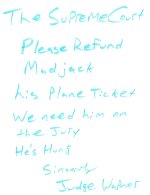 The Supreme Court
Please Refund
Madjack
his Plane Ticket
We need him on
the Jury
He's Hung
Sincerely
Judge Wapner